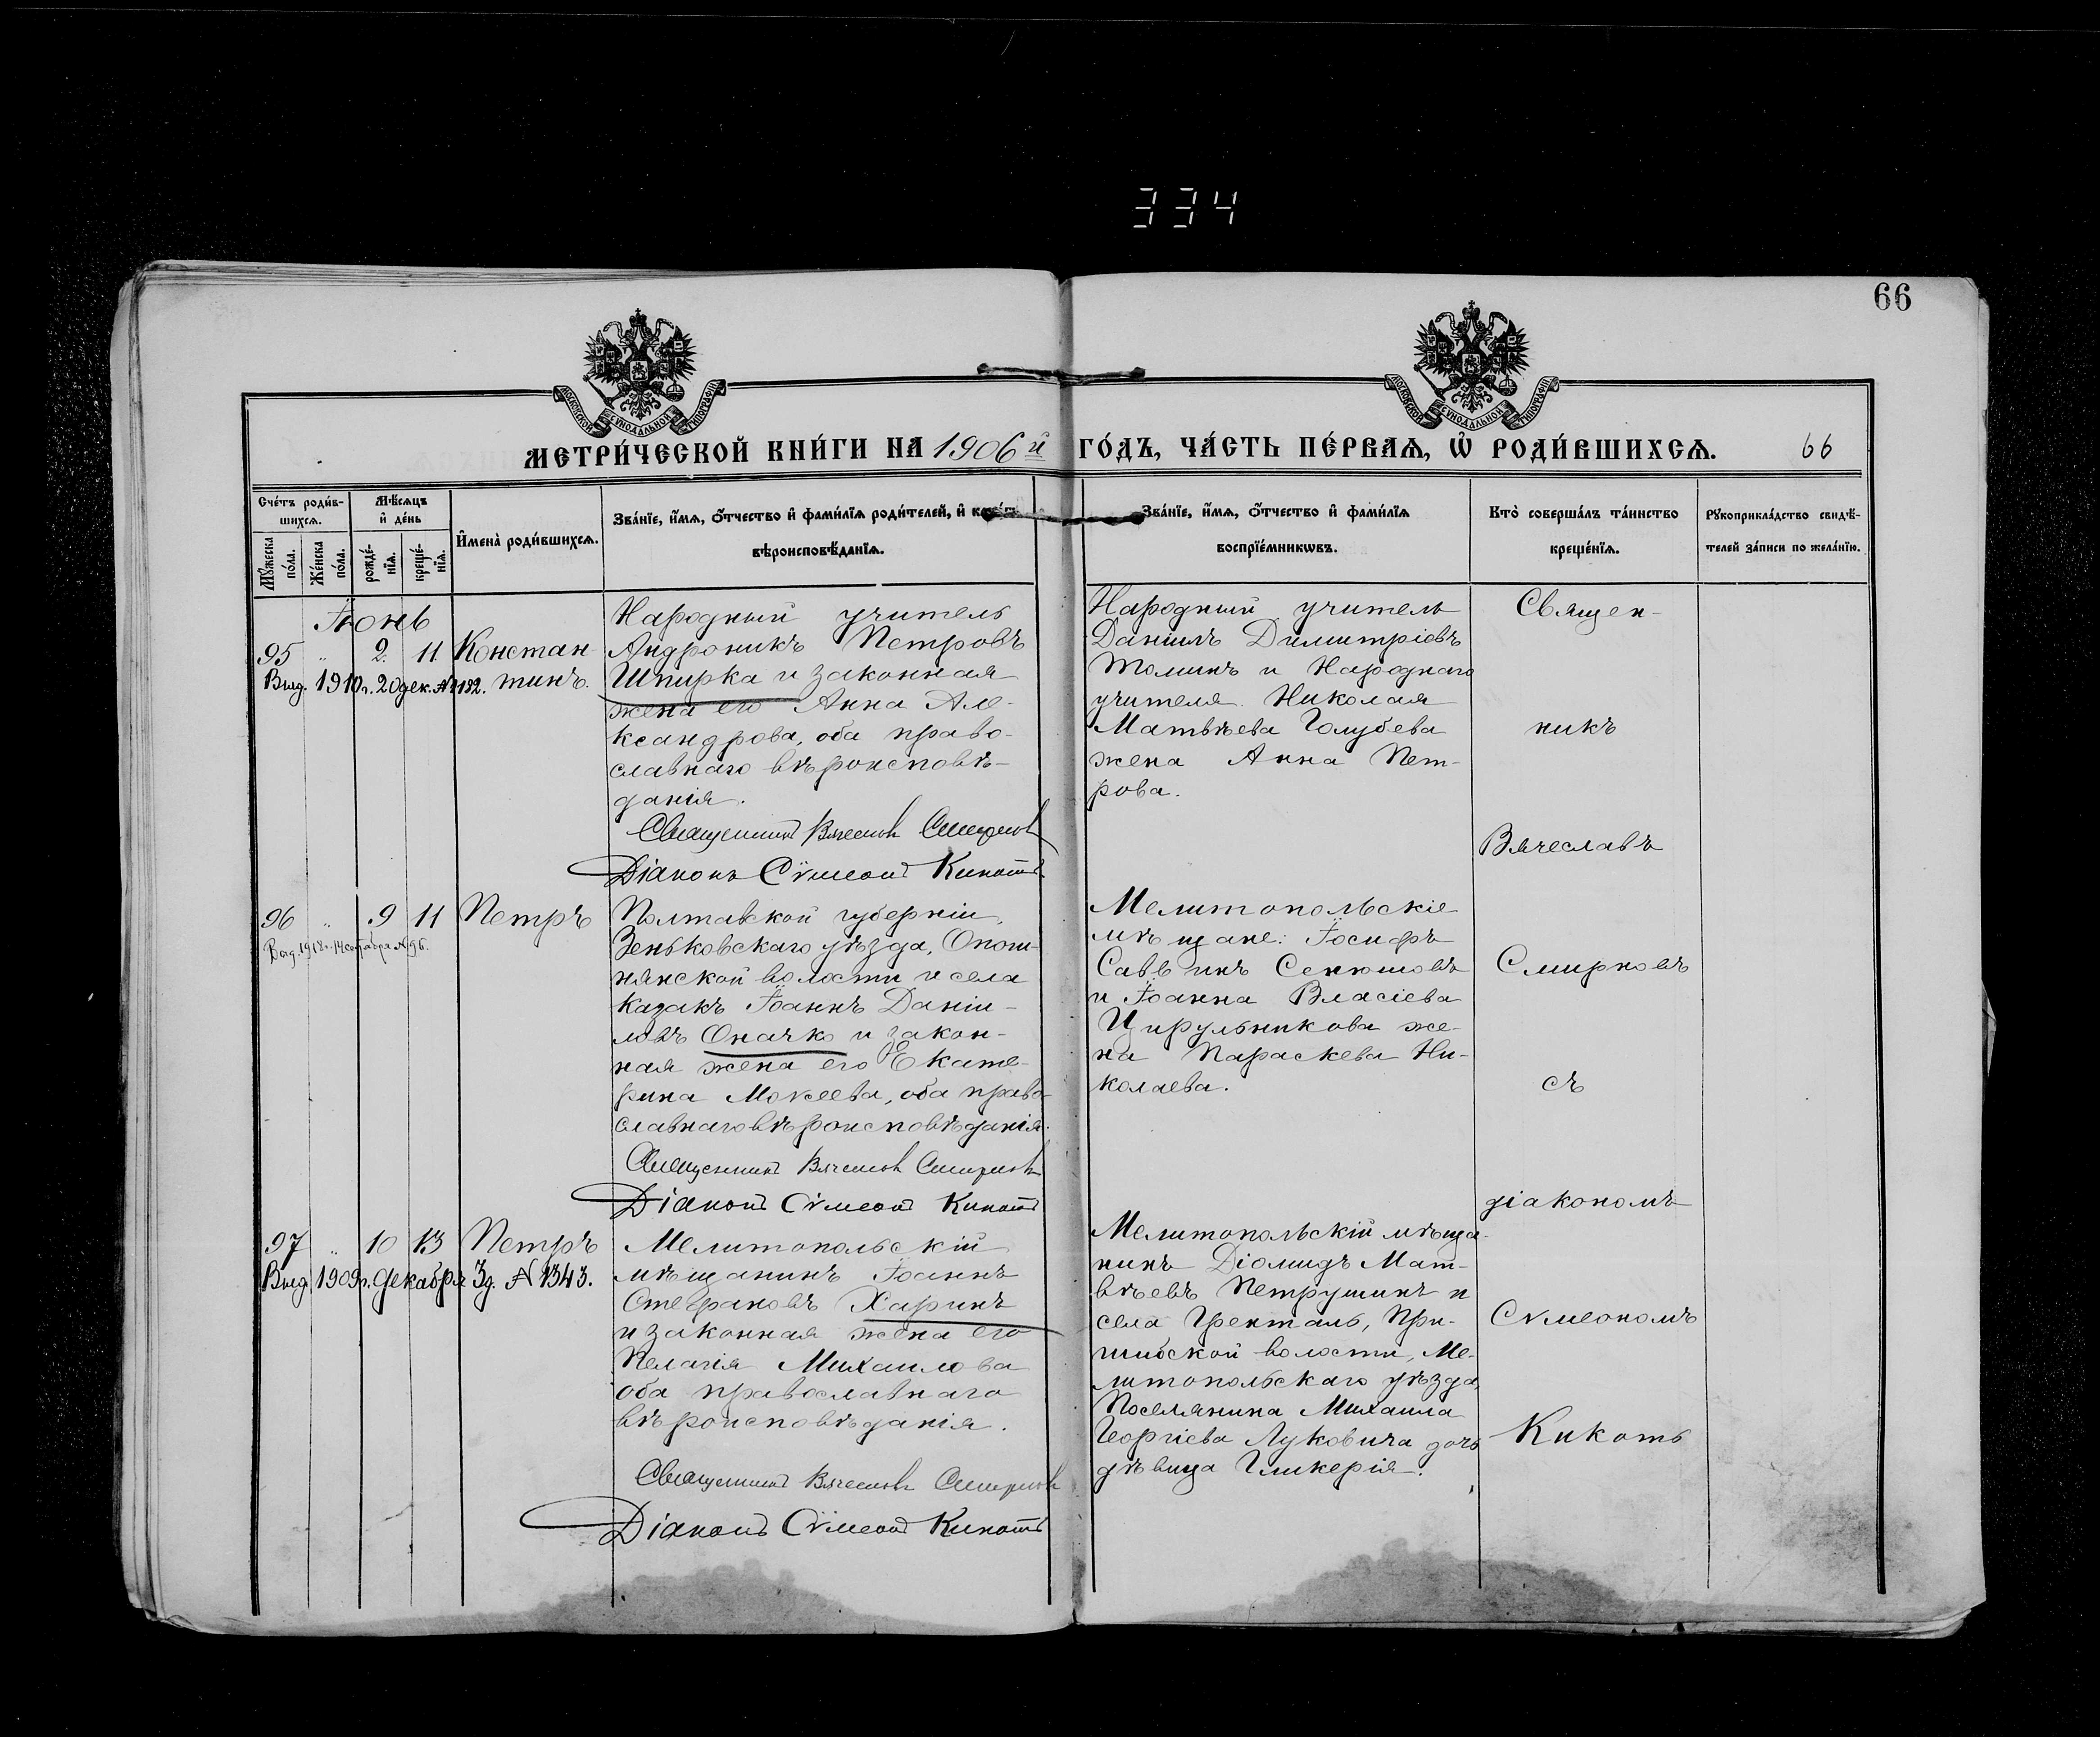 334
66
МОСКОВСКОЙ СѴНОДАЛЬНОЙ ТИПОГРАФІИ
МОСКОВСКОЙ СѴНОДАЛЬНОЙ ТИПОГРАФІИ
МЕТРИ́ЧЕСКОЙ КНИ́ГИ НА 1906й ГО́ДЪ, ЧА́СТЬ ПЕ́РВАѦ, Ѡ҆ РОДИ́ВШИХСѦ. 66
Сче́тъ роди́в-
шихсѧ.
Мѹ́жеска по́ла.
Же́нска по́ла.
Мѣ́сѧцъ
и҆ де́нь
рожде́-
нїѧ.
креще́-
нїѧ.
И҆мена̀ роди́вшихсѧ.
Зва́нїе, и҆́мѧ, ѻ҆́тчество и҆ фами́лїѧ роди́телей, и҆ како́гѡ
вѣроисповѣ́данїѧ.
Зва́нїе, и҆́мѧ, ѻ҆́тчество и҆ фами́лїѧ
воспрїе́мникѡвъ.
Кто̀ соверша́лъ та́инство
креще́нїѧ.
Рѹкоприкла́дство свидѣ́-
телей за́писи по жела́нїю.
Іюнь
95 " 2. 11. Констан-
тинъ.
Выд. 1910г. 20 дек. № 1192.
Народный учитель
Андроникъ Петровъ
Шпирка и законная
жена его Анна Але-
ксандрова, оба право-
славнаго вѣроисповѣ-
данія.
Священникъ Вячеславъ Смирновъ
Діаконъ Сѵмеонъ Кикоть
Народный учитель
Даніилъ Димитріевъ
Толминъ и Народнаго
учителя Николая
Матвѣева Голубева
жена Анна Пет-
рова.
Священ-
никъ
Вячеславъ
96 " 9 11 Петръ
Выд. 1918г. 14 сентября № 96.
Полтавской губерніи,
Зеньковскаго уѣзда, Опош-
нянской волости и села
казакъ Іоаннъ Даніи-
ловъ Оначко и закон-
ная жена его Екате-
рина Мокеева, оба право-
славнаго вѣроисповѣданія.
Священникъ Вячеславъ Смирновъ
Діаконъ Сѵмеонъ Кикоть
Мелитопольскіе
мѣщане: Іосифъ
Саввинъ Сенюшовъ
и Іоанна Власіева
Цирульникова же-
на Параскева Ни-
колаева.
Смирновъ
съ
діакономъ
97 " 10 13 Петръ
Выд. 1909г. декабря 3д. № 1343.
Мелитопольскій
мѣщанинъ Іоаннъ
Стефановъ Харинъ
и законная жена его
Пелагія Михаилова
оба православнаго
вѣроисповѣданія.
Священникъ Вячеславъ Смирновъ
Діаконъ Сѵмеонъ Кикоть
Мелитопольскій мѣща-
нинъ Діомидъ Мат-
вѣевъ Петрушинъ и
села Гренталь, При-
шибской волости, Ме-
литопольскаго уѣзда,
Поселянина Михаила
Георгіева Луковича дочь
дѣвица Гликерія.
Сѵмеономъ
Кикоть